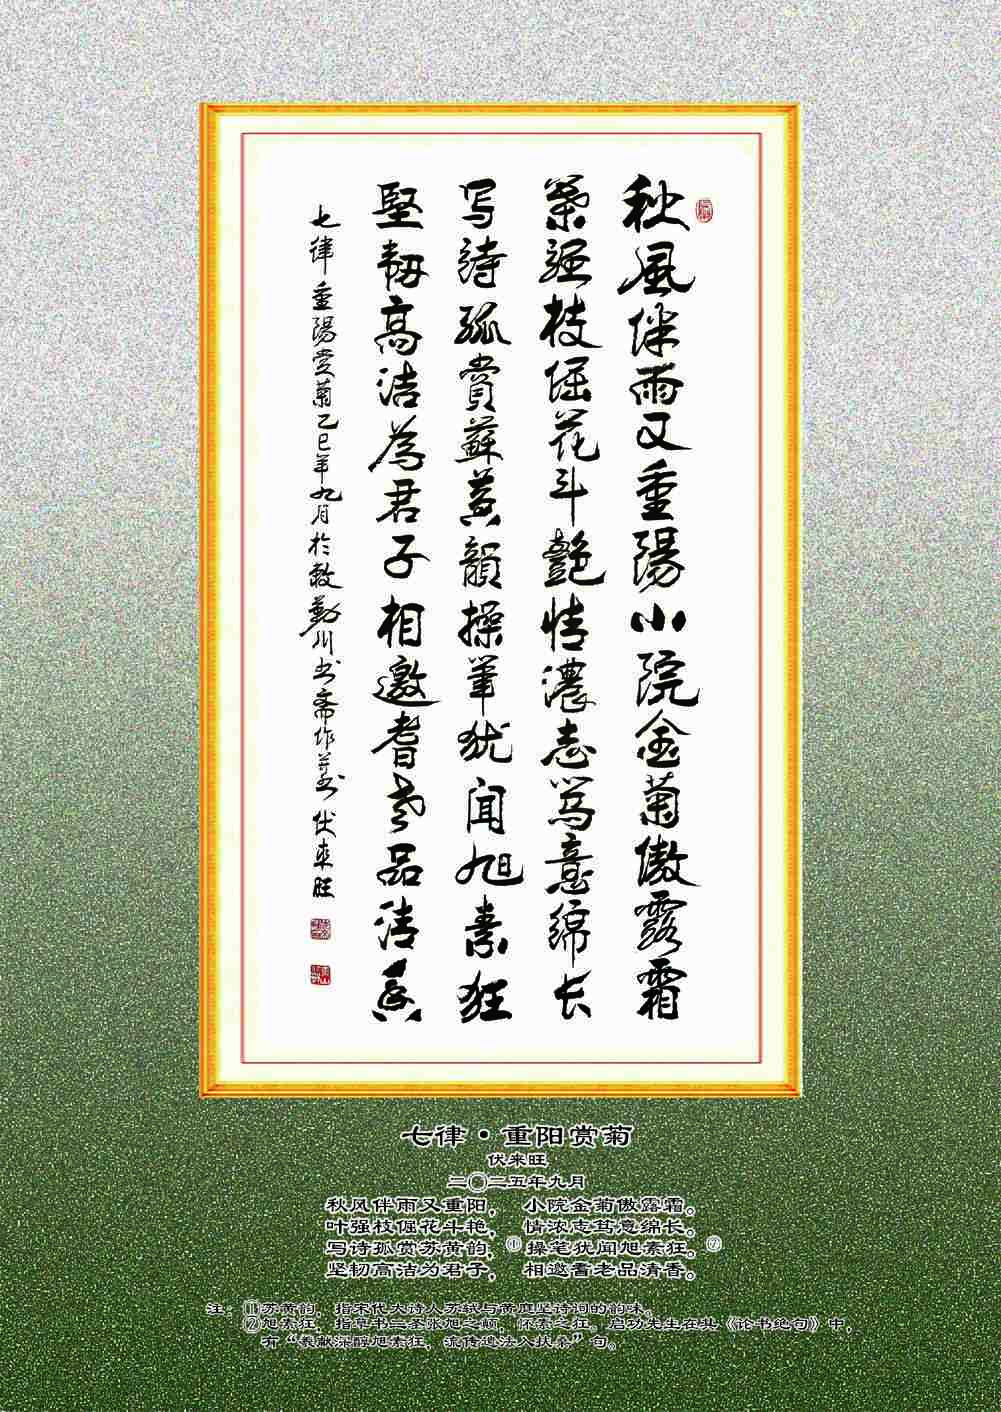 秋風伴雨又重陽小院金菊傲露霜
葉强枝倔花斗艷情濃志笃意綿长
写詩孤賞蘇黄韻操筆犹闻旭素狂
堅韌高洁為君子相邀耆老品清香
七律重陽赏菊乙巳年九月於敕勒川书斋作并书 伏來旺
七律·重阳赏菊
伏来旺
二〇二五年九月
秋风伴雨又重阳, 小院金菊傲露霜。
叶强枝倔花斗艳, 情浓志笃意绵长。
写诗孤赏苏黄韵,① 操笔犹闻旭素狂。②
坚韧高洁为君子, 相邀耆老品清香。
注:①苏黄韵,指宋代大诗人苏轼与黄庭坚诗词的韵味。
②旭素狂,指草书二圣张旭之颠,怀素之狂。启功先生在其《论书绝句》中,
有“羲献深醇旭素狂,流传遗法入扶桑”句。